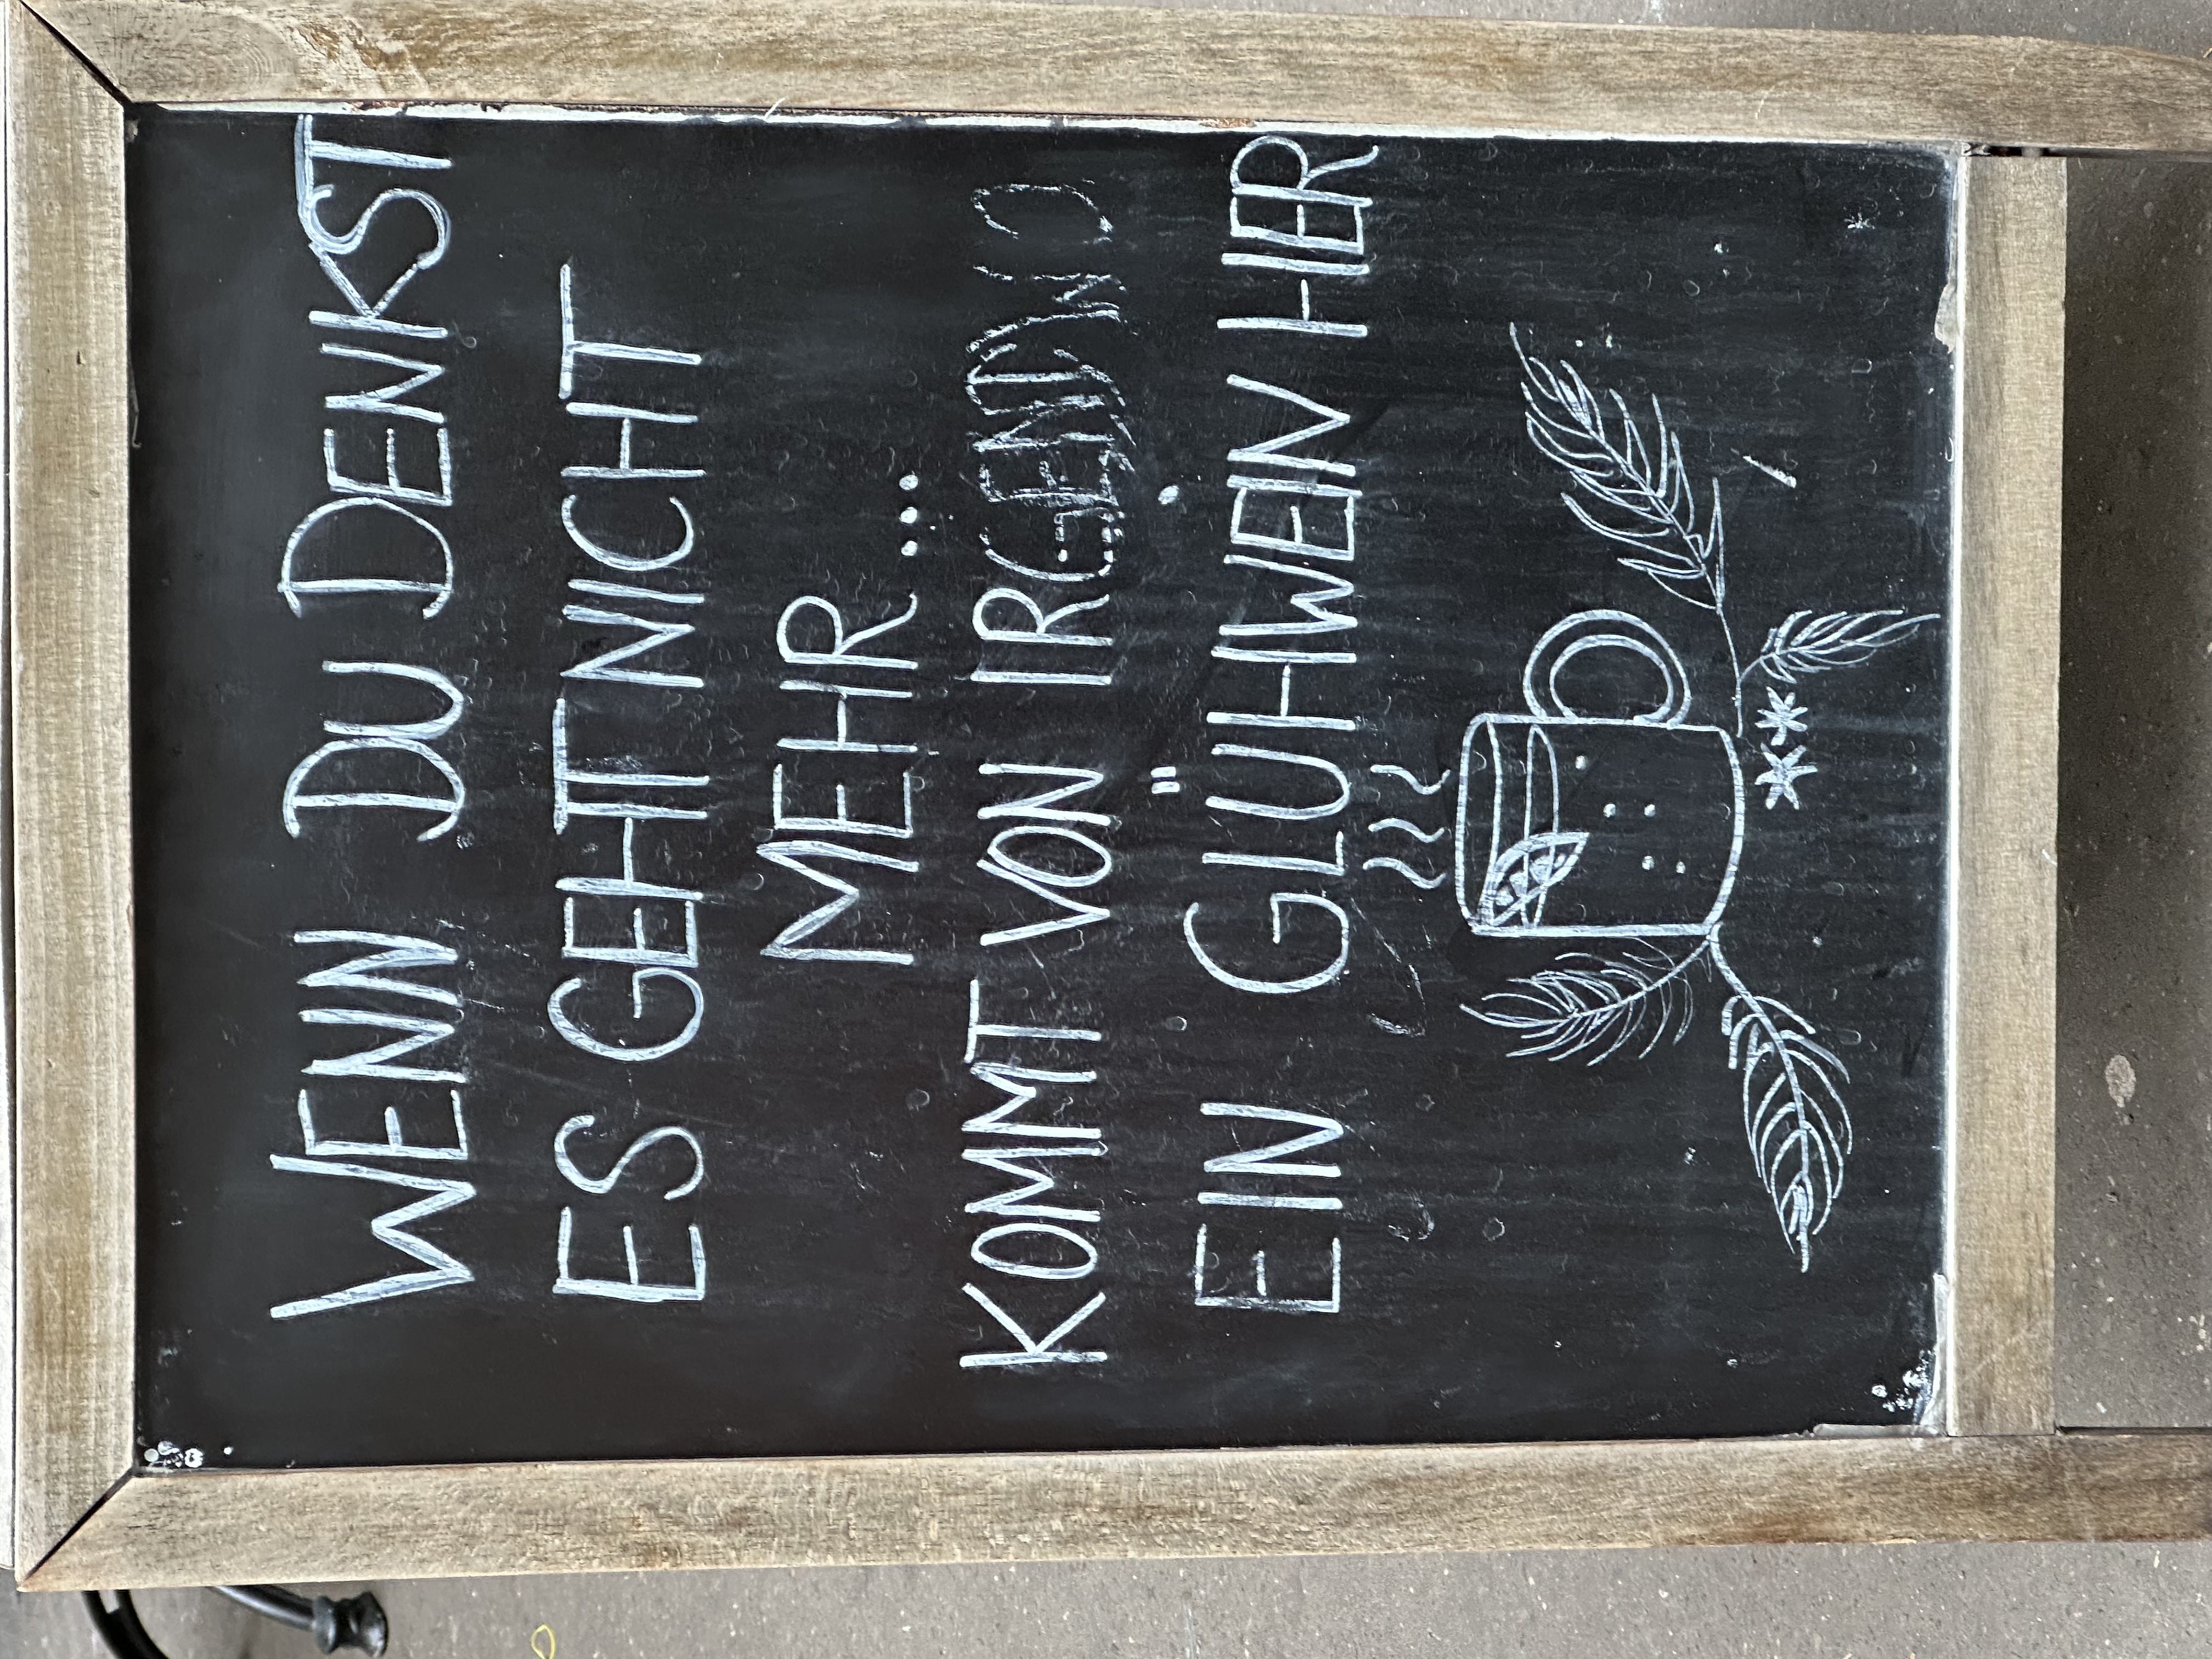 WENN DU DENKST
ES GEHT NICHT
MEHR...
KOMMT VON IRGENDWO
EIN GLÜHWEIN HER